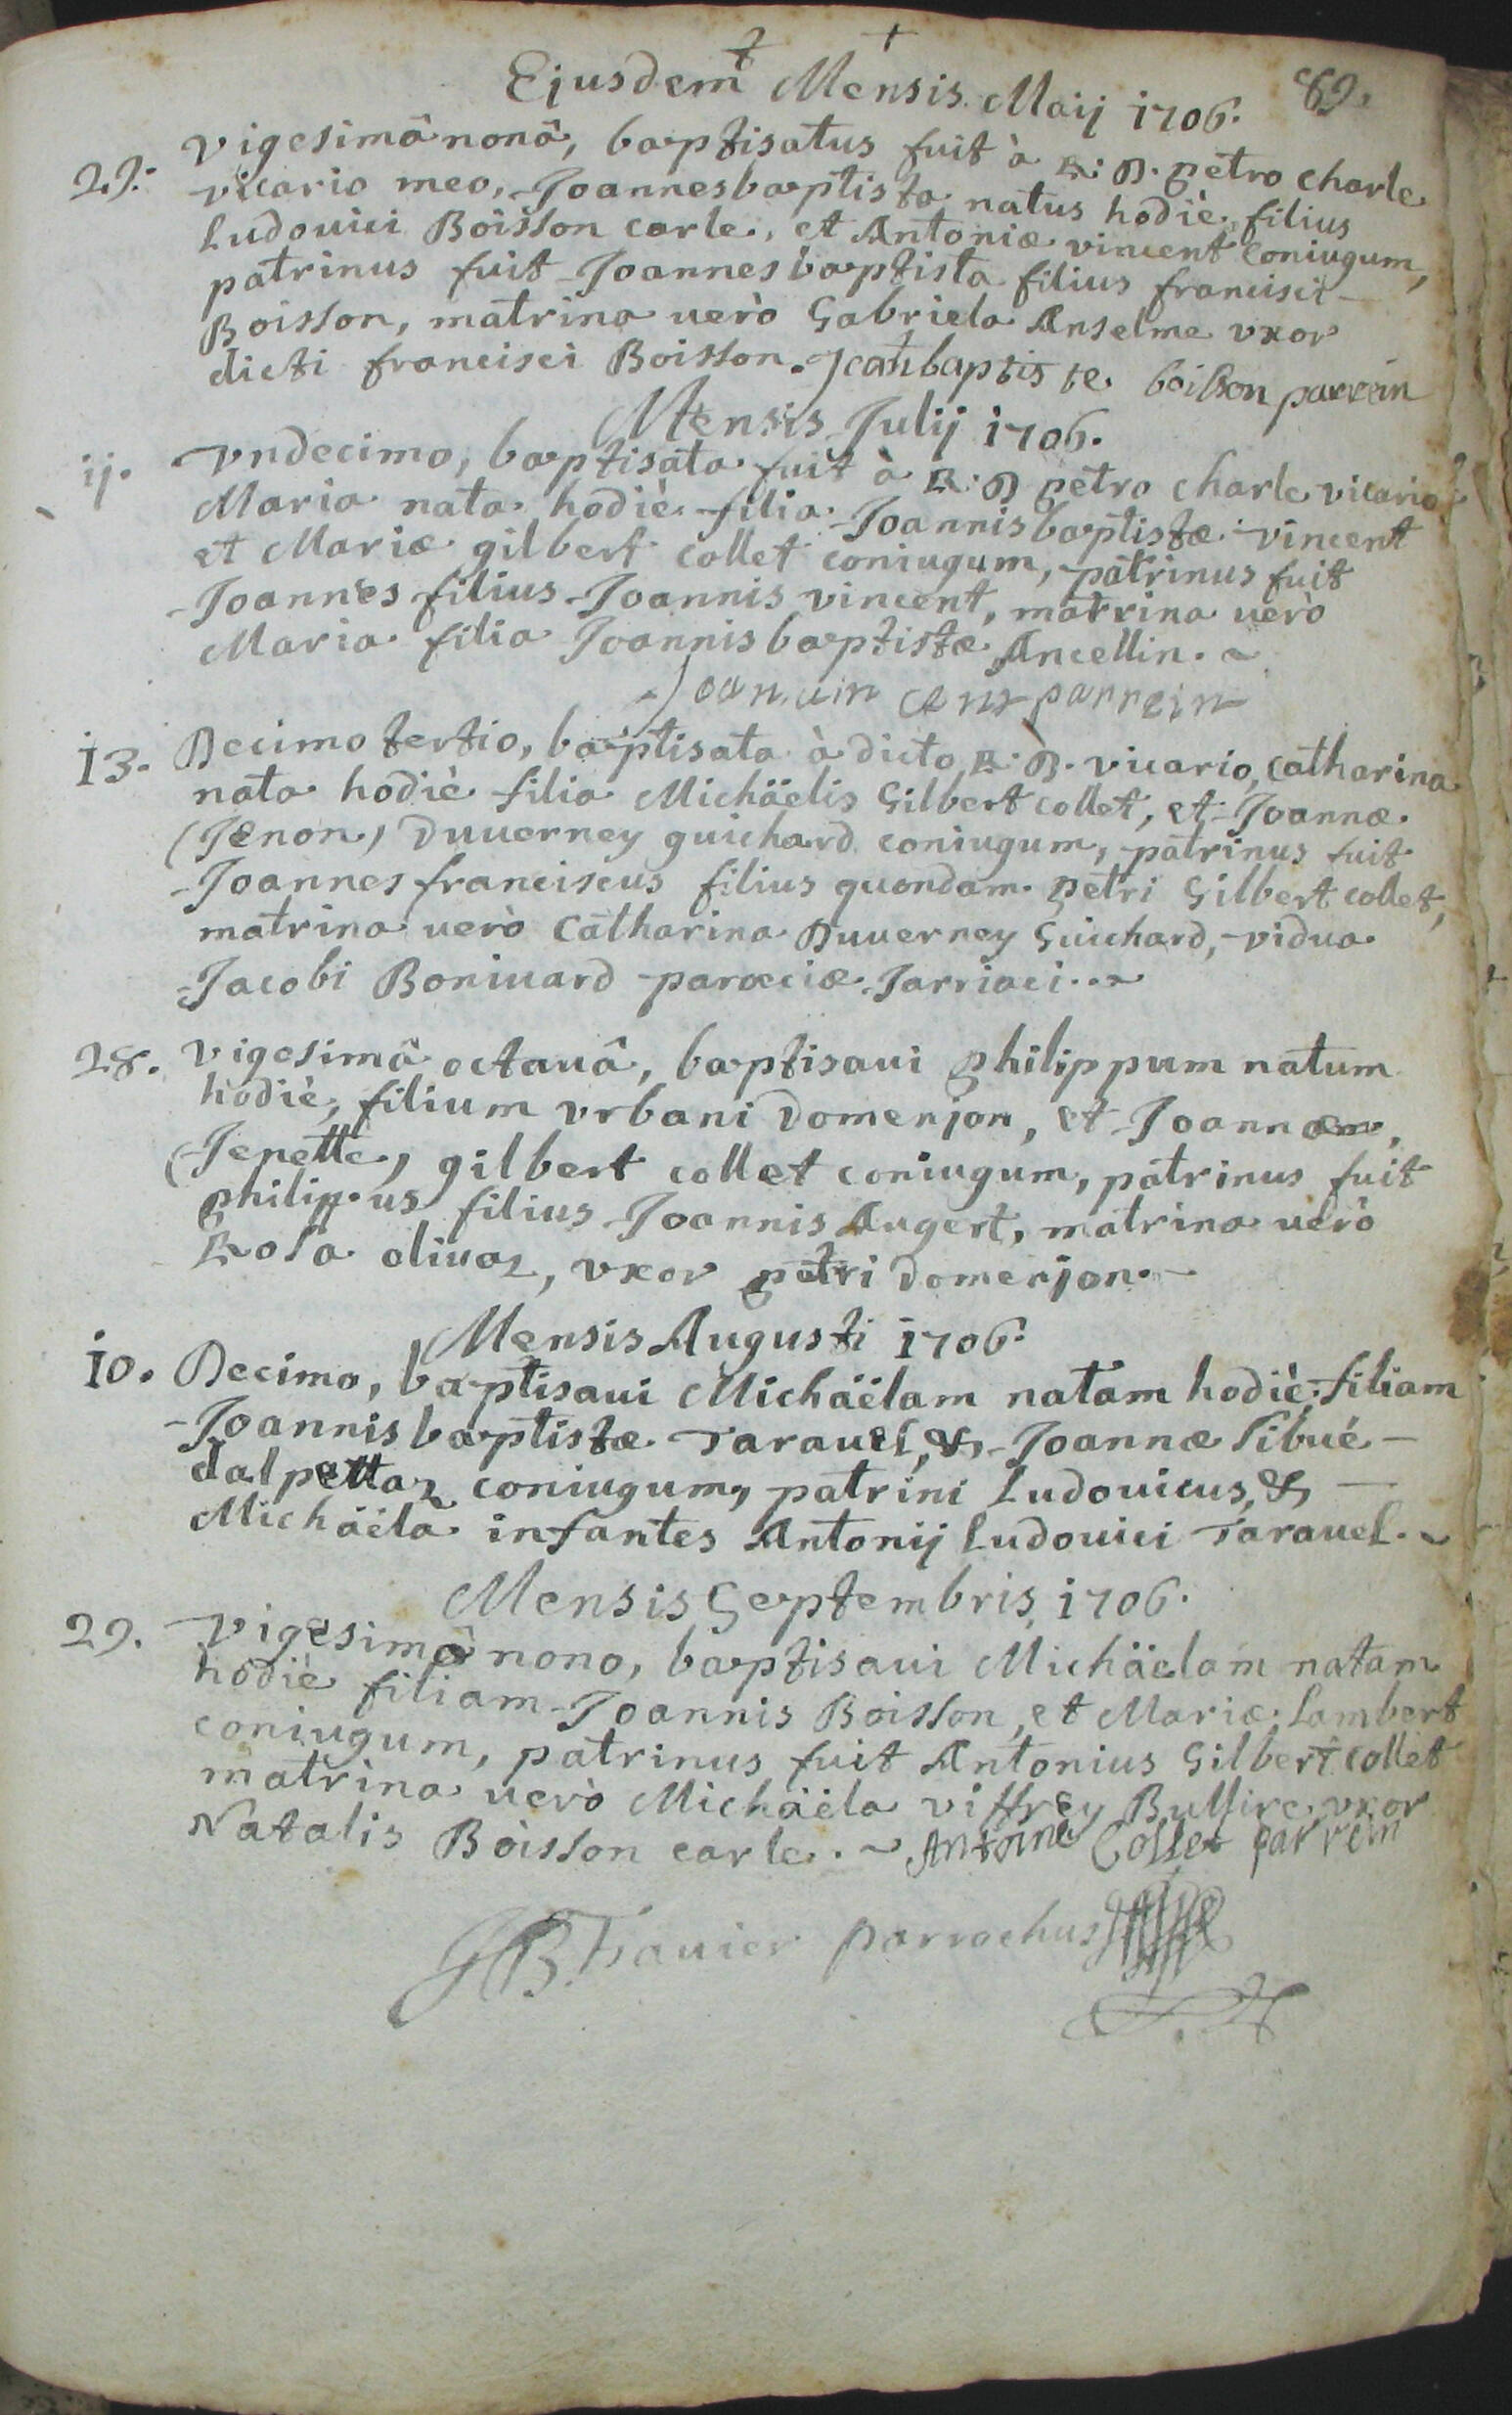 Ejusdem Mensis Maij 1706. 69.
29. Vigesimâ nonâ, baptisatus fuit à R: D. petro charle
vicario meo, Joannesbaptista natus hodiè, filius
Ludouici Boisson carle, et Antoniæ vincent coniugum,
patrinus fuit Joannesbaptista filius francisci
Boisson, matrina uerò Gabriela Anselme vxor
dicti francisci Boisson. Jeanbaptiste boisson parrein
Mensis Julij 1706.
ij. Vndecimo, baptisata fuit à R: D petro charle vicario
Maria nata hodiè filia Joannisbaptistæ vincent
et Mariæ gilbert collet coniugum, patrinus fuit
Joannes filius Joannis vincent, matrina uerò
Maria filia Joannisbaptistæ Ancellin.
Joan uin cent parrein
13. Decimo tertio, baptisata à dicto R: D. vicario, catharina
nata hodiè filia Michäelis Gilbert collet, et Joannæ
(Jenon) Duuerney guichard coniugum, patrinus fuit
Joannes franciscus filius quondam petri Gilbert collet,
matrina uerò Catharina Duuerney Guichard, vidua
Jacobi Boniuard parœciæ Jarriaci.
28. Vigesimâ octauâ, baptisaui philippum natum
hodiè, filium vrbani Domenjon, et Joannæ
(Jenette) gilbert collet coniugum, patrinus fuit
philippus filius Joannis Augert, matrina uerò
Rosa oliuaz, vxor petri Domenjon.
Mensis Augusti 1706.
10. Decimo, baptisaui Michäëlam natam hodiè, filiam
Joannisbaptistæ Tarauel, & Joannæ Sibué
dalpettaz coniugum, patrini Ludouicus, &
Michäëla infantes Antonij Ludouici Tarauel.
Mensis Septembris 1706.
29. Vigesimo nono, baptisaui Michäelam natam
hodiè filiam Joannis Boisson, et Mariæ Lambert
coniugum, patrinus fuit Antonius Gilbert collet
matrina uerò Michäëla viffrey Buffire vxor
Natalis Boisson carle. Antoine Collet parrein
JB. parrochus